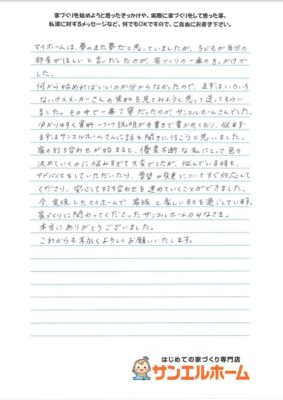 家づくりを始めようと思ったきっかけや、実際に家づくりをして思った事、
私達に対するメッセージなど、何でもOKですので、ご自由にお書き下さい。
マイホームは、夢のまた夢だと思っていましたが、子どもが自分の
部屋がほしいと言いだしたのが、家づくりの一番のきっかけで
した。
何から始めればいいのか分からなかったので、まずはいろいろ
なハウスメーカーさんの資料を見てみようと思って送ってもらい
ました。その中で一番丁寧だったのが、サンエルホームさんでした。
分かりやすく資料一つ一つ説明が手書きで書かれており、悩まず
まずはサンエルホームさんに話を聞きに行こうと思いました。
家の打ち合わせが始まると、優柔不断な私にとって色々
決めていくのに悩みすぎて大変でしたが、悩んでいる時も、
アドバイスをしていただいたり、要望や変更についてすぐ対応して
くださり、安心して打ち合わせを進めていくことができました。
今、完成したマイホームで、家族と楽しい日々を過ごしています。
家づくりに関わってくださったサンエルホームのみなさま。
本当にありがとうございました。
これからも末永くよろしくお願いいたします。
はじめての家づくり専門店
サンエルホーム